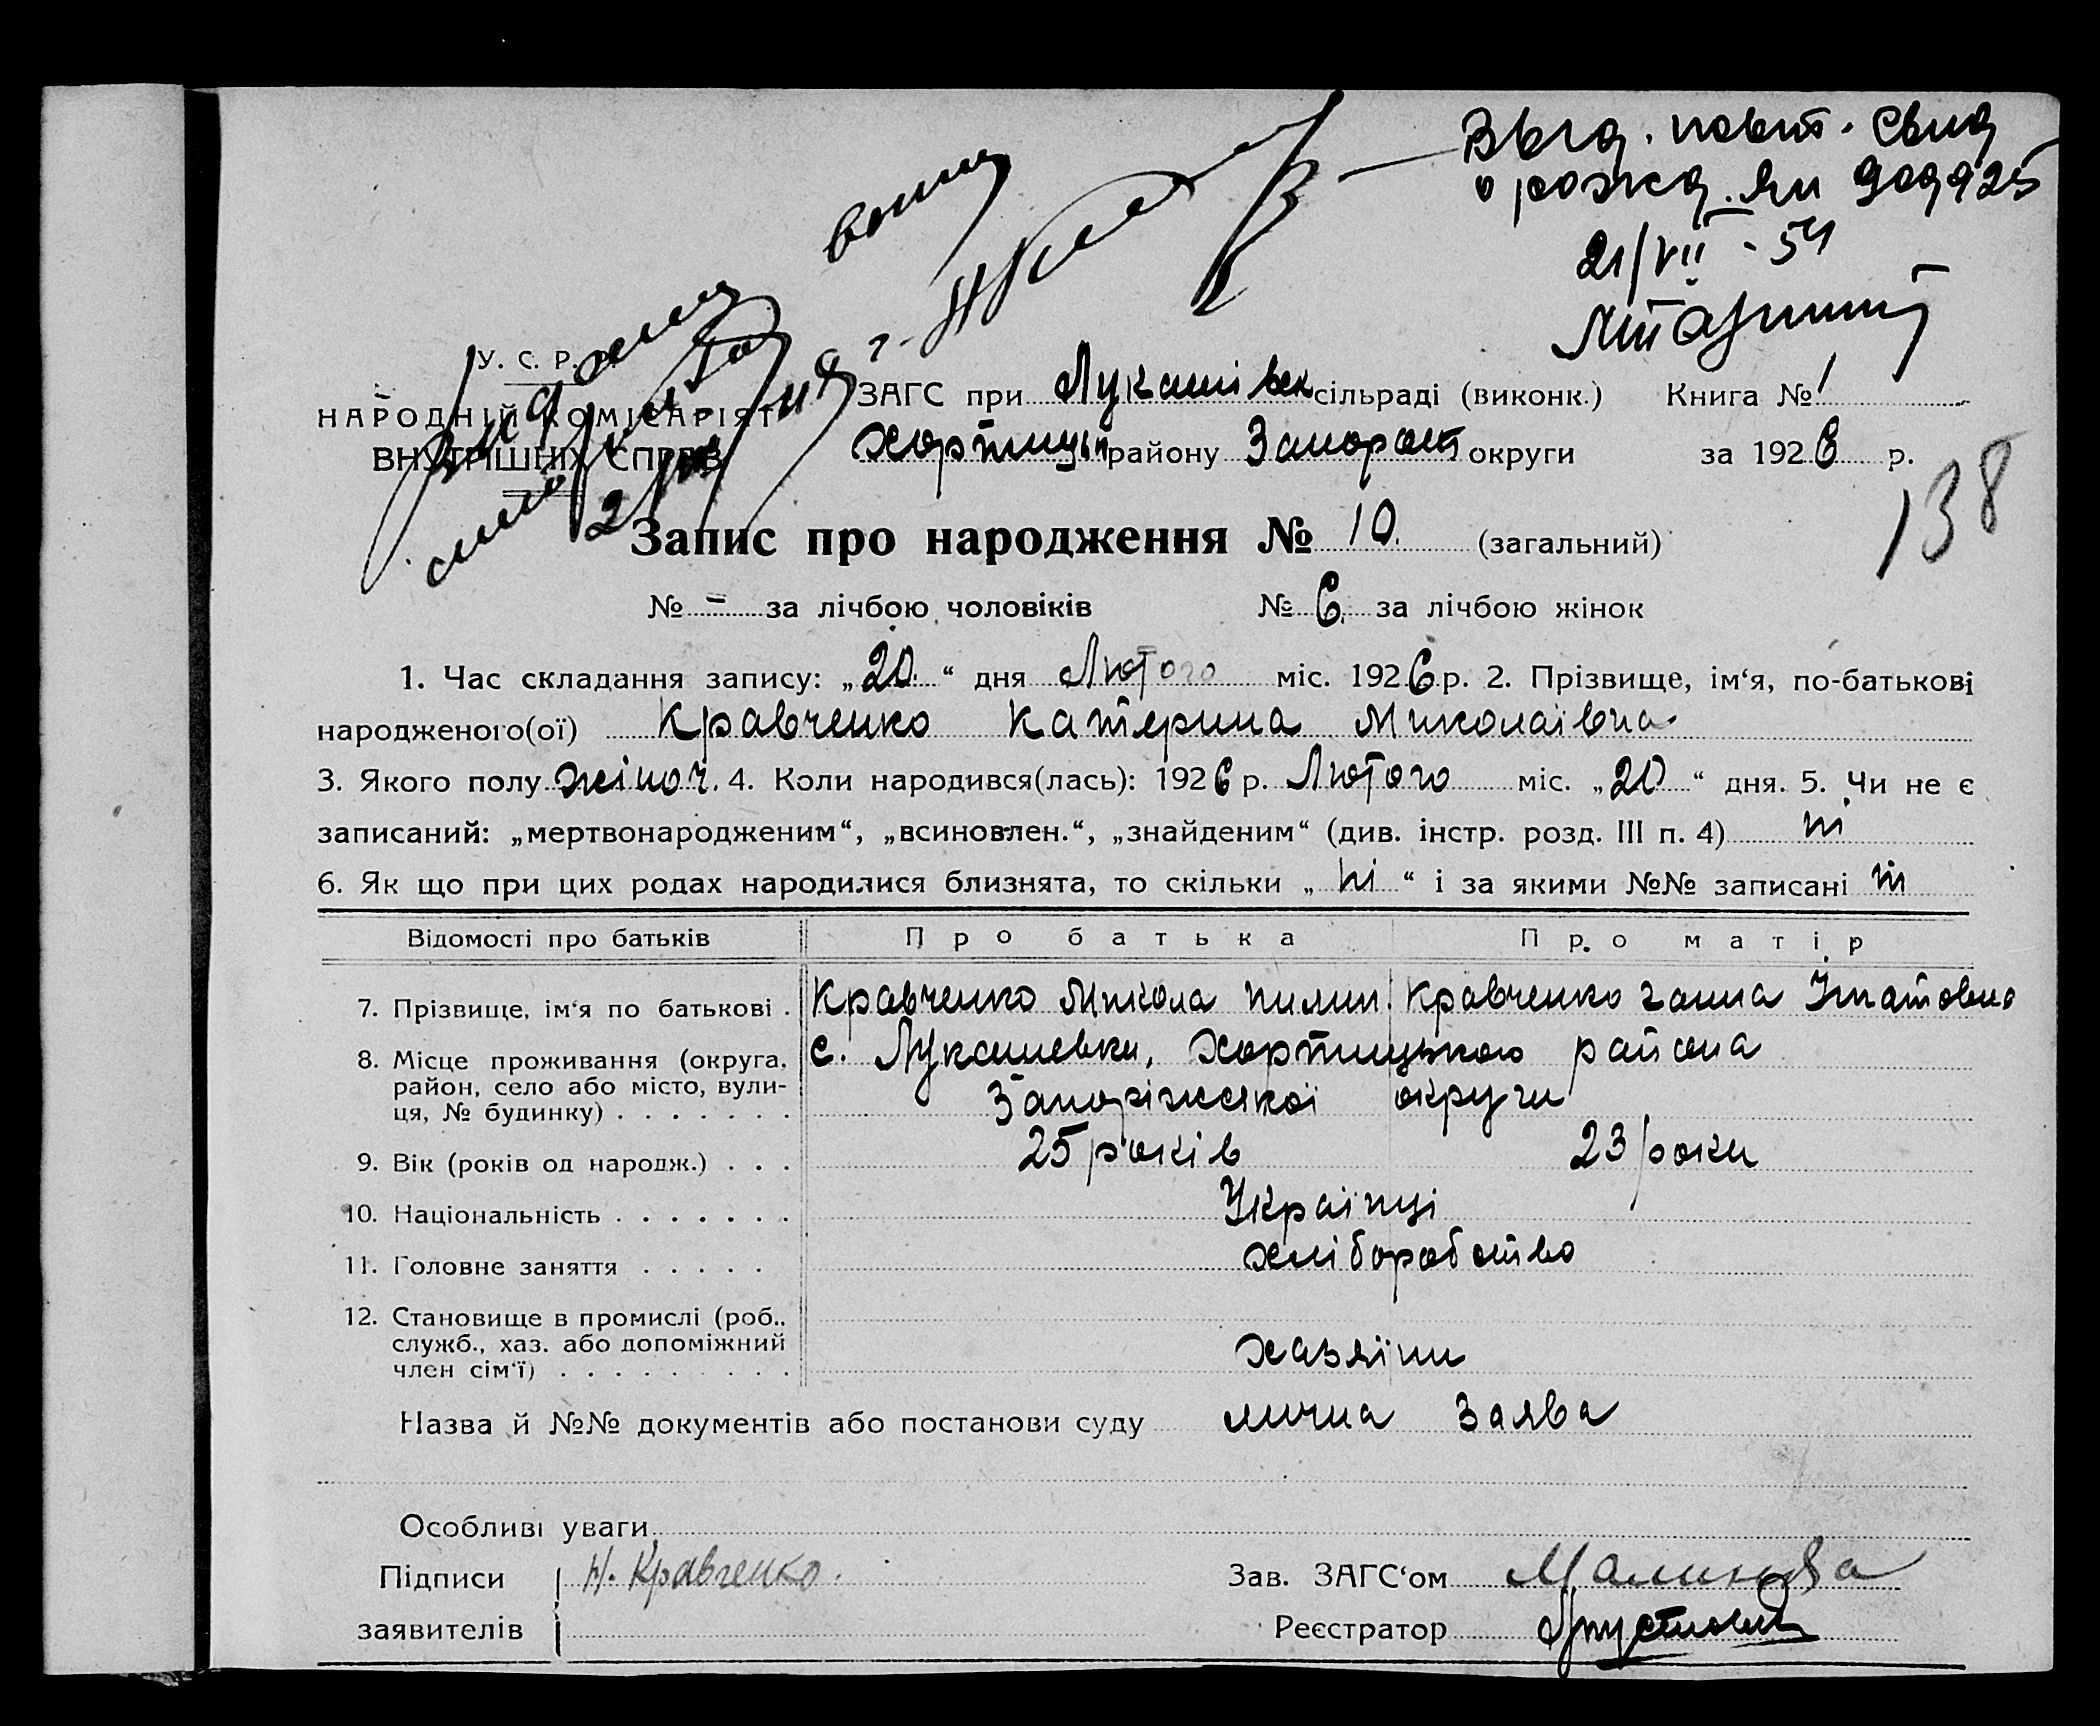 Выд. повт. свид
о рожд. ЯИ 909925
21/VII - 54
У. С. Р. Р.
НАРОДНІЙ КОМІСАРІЯТ
ВНУТРІШНІХ СПРАВ
ЗАГС при Лукашівск сільраді (виконк.) Книга № 1
Хортицьк району Запорож округи за 1926 р.
138
Запис про народження № 10. (загальний)
№ - за лічбою чоловіків № 6. за лічбою жінок
1. Час складання запису: „20.“ дня Лютого міс. 1926 р. 2. Прізвище, ім‘я, по-батькові
народженого(ої) Кравченко Катерина Миколаївна
3. Якого полу жіноч. 4. Коли народився(лась): 1926 р. Лютого міс. „20“ дня. 5. Чи не є
записаний: „мертвонародженим“, „всиновлен.“, „знайденим“ (див. інстр. розд. III п. 4) ні
6. Як що при цих родах народилися близнята, то скільки „ні“ і за якими №№ записані ні
Відомості про батьків Про батька Про матір
7. Прізвище, ім‘я по батькові . Кравченко Микола Пилип. Кравченко Ганна Ігнатовна
8. Місце проживання (округа, район, село або місто, вули-ця, № будинку) . . . . . . . с. Лукашевки, Хортицького района
Запоріжської округи
9. Вік (років од народж.) . . . 25 років 23 роки
10. Національність . . . . . . . Українці
11. Головне заняття . . . . . хліборобство
12. Становище в промислі (роб., служб., хаз. або допоміжний член сім‘ї) . . . . . . . . . хазяїни
Назва й №№ документів або постанови суду лична заява
Особливі уваги
Підписи Н. Кравченко. Зав. ЗАГС‘ом Малинова
заявителів Реєстратор